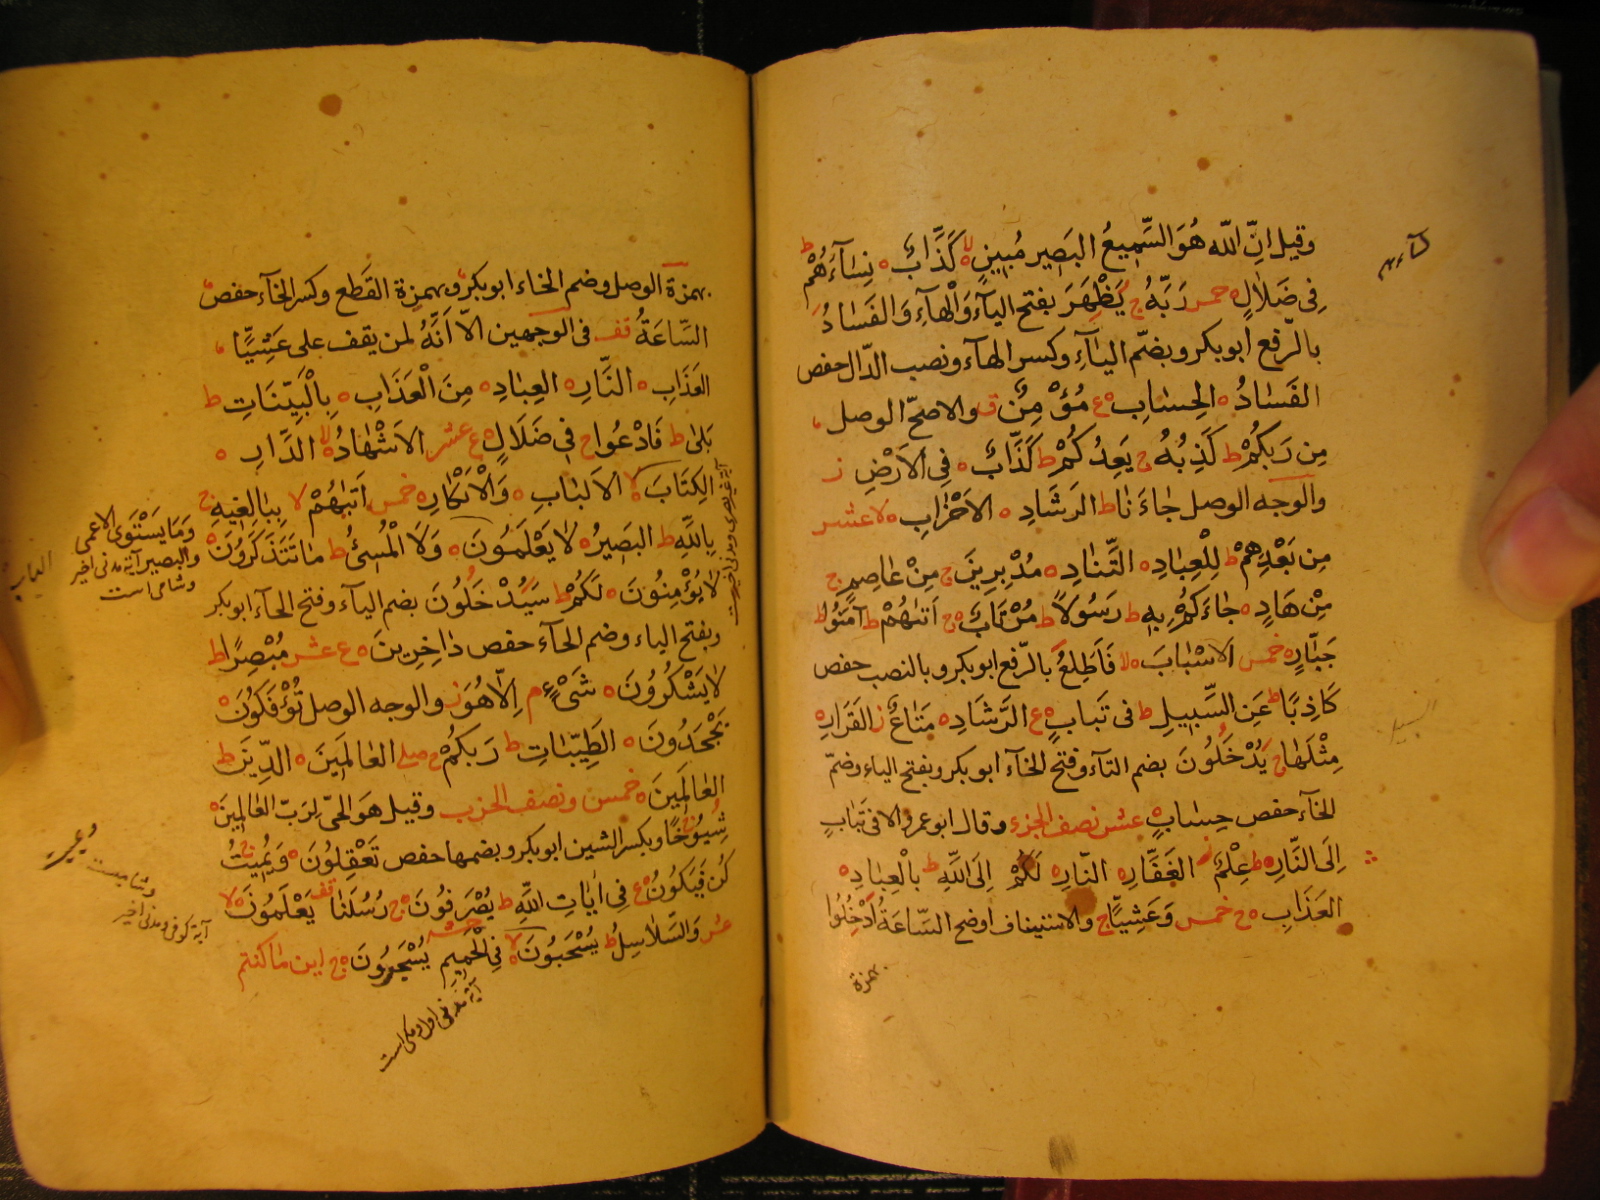 وقيل اِنَّ اللّه هُوَ السَّمِيعُ البَصِير مُبِينٍ لا كَذَّابٌ ه نِسَآءَهُمْ ط
فِى ضَلَالٍ ه خمس رَبَّهُ ج يَظْهَرَ بفتح اليآءِ وَالْهآءِ وَالفَسَادُ
بالرّفع ابوبكر وبضمّ اليَآءِ وكسر الهآء ونصب الدّال حفص
الفَسَادُ ه الحِسَابِ ه ع مُؤْمِنٌ ق والاصحّ الوصل
مِن رَبِّكُمْ ط كَذِبُهُ ج يَعِدُكُمْ ط كَذَّابٌ ه فِى الاَرْضِ ز
والوجه الوصل جَاءَنَا ط الرَشَادِ ه الاَحْزَابِ ه لا عشر
مِن بَعْدِهِمْ ط لِلْعِبَادِ ه التَّنَادِ ه مُدْبِرِينَ ج مِنْ عَاصِمٍ ج
مِنْ هَادٍ ه جَاءَكُمْ بِهِ ط رَسُولاً ط مُرْتَابٌ ه ج اَتٰهُمْ ط آمَنُوا ط
جَبَّارٍ ه خمس الاَسْبَابَ ه لا فَاَطَّلِعُ بالرّفع ابوبكر وبالنصب حفص
كَاذِبًا ط عَنِ السَّبِيلِ ط فى تَبابٍ ه ع الرَّشَادِ ه مَتَاعٌ ز القَرَارِ ه
مِثْلَهَا ج يُدْخَلُونَ بضم اليآء وفتح الخآء ابوبكر وبفتح الياء وضمّ
الخآء حفص حِسَابٍ ه عشر نصف الجزء وقال ابوعمرو الا فى تَبَابٍ
اِلَى النَّارِ ه ط عِلْمٌ ز الغَفَّارِ ه النَّارِ ه لَكُمْ ط اِلَى اللَّهِ ط بِالْعِبَادِ ه
العَذَابِ ه ج خمس وَعَشِيًّا ج والاستيناف اوضح السَّاعَةُ اَدْخِلُوا
بهمزة
السبيل
بهمزة الوصل وضم الخاء ابوبكر وبهمزة القَطع وكسر الخآء حفص
السَّاعَةُ قف فى الوجهين الاّ اَنَّهُ لمن يقف على عَشِيًّا
العَذَابِ ه النَّارِ ه العِبَادِ ه مِنَ الْعَذَابِ ه بِالْبَيِّنَاتِ ط
بَلىٰ ط فَادْعُوا ج فِى ضَلَالٍ ه ع عشر الاَشْهَادُ ه لا الدَّارِ ه
الكِتَابَ ه لا الاَلبَابِ ه وَالْاِبْكَارِ ه خمس اَتٰهُمْ لا بِبَالِغِيهِ ج
بِاللَّهِ ط البَصِيرُ ه لا يَعْلَمُونَ ه وَلَا الْمُسِئُ ط مَا تَتَذَكَّرُونَ ه
لَا يُؤْمِنُونَ ه لَكُمْ ط سَيُدْخَلُونَ بضم اليآء وفتح الخآء ابوبكر
وبفتح الياء وضم الخآء حفص دَاخِرِينَ ه ع عشر مُبْصِرًا ط
لَا يَشْكُرُونَ ه شَىْءٍ م اِلَّا هُوَ ز والوجه الوصل تُؤْفَكُونَ ه
يَجْحَدُونَ ه الطَيِّبَاتِ ط رَبُّكُمْ ج صلى العَالَمِينَ ه الدِّينَ ط
العَالَمِينَ ه خمس ونصف الحزب وقيل هَوَ الحَىّ لِرَبّ العَالَمِينَ ه
شِيُوخًا ج وبكسر الشين ابوبكر وبضمها حفص تَعْقِلُونَ ه وَيُمِيتُ ج
كُن فَيَكُونُ ه ع فِى اٰيَاتِ اللَّهِ ط يُصْرَفُونَ ه ج رُسُلَنَا قف يَعْلَمُونَ ه لا
عشر وَالسَّلَاسِلُ ط يُسْحَبُونَ ه لا فِى الْحَمِيمِ يُسْجَرُونَ ه ج اين ما كنتم
وَمَا يَسْتَوِى الاعمى
والبصير آية مدنى اخير
وشامى است
آية كوفى ومدنى اخير
وشاميست
آية مدنى اول ومكى است